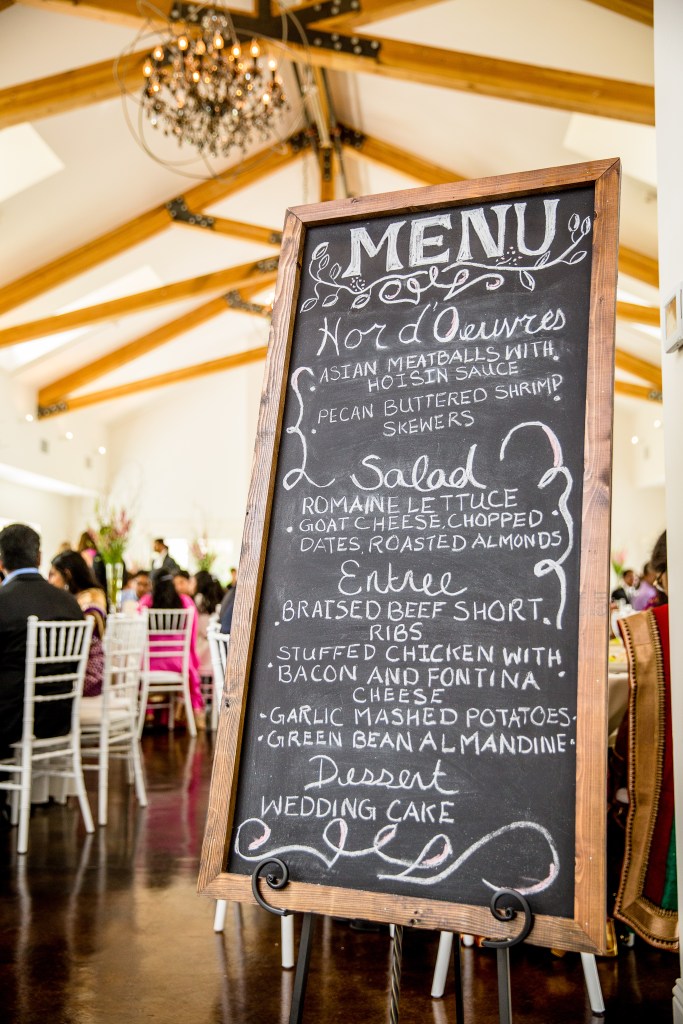 MENU
Hor d'Oeuvres
• ASIAN MEATBALLS WITH
HOISIN SAUCE •
• PECAN BUTTERED SHRIMP
SKEWERS •
Salad
ROMAINE LETTUCE
• GOAT CHEESE, CHOPPED •
DATES, ROASTED ALMONDS
Entree
• BRAISED BEEF SHORT •
RIBS
STUFFED CHICKEN WITH
• BACON AND FONTINA •
CHEESE
• GARLIC MASHED POTATOES •
• GREEN BEAN ALMANDINE •
Dessert
WEDDING CAKE